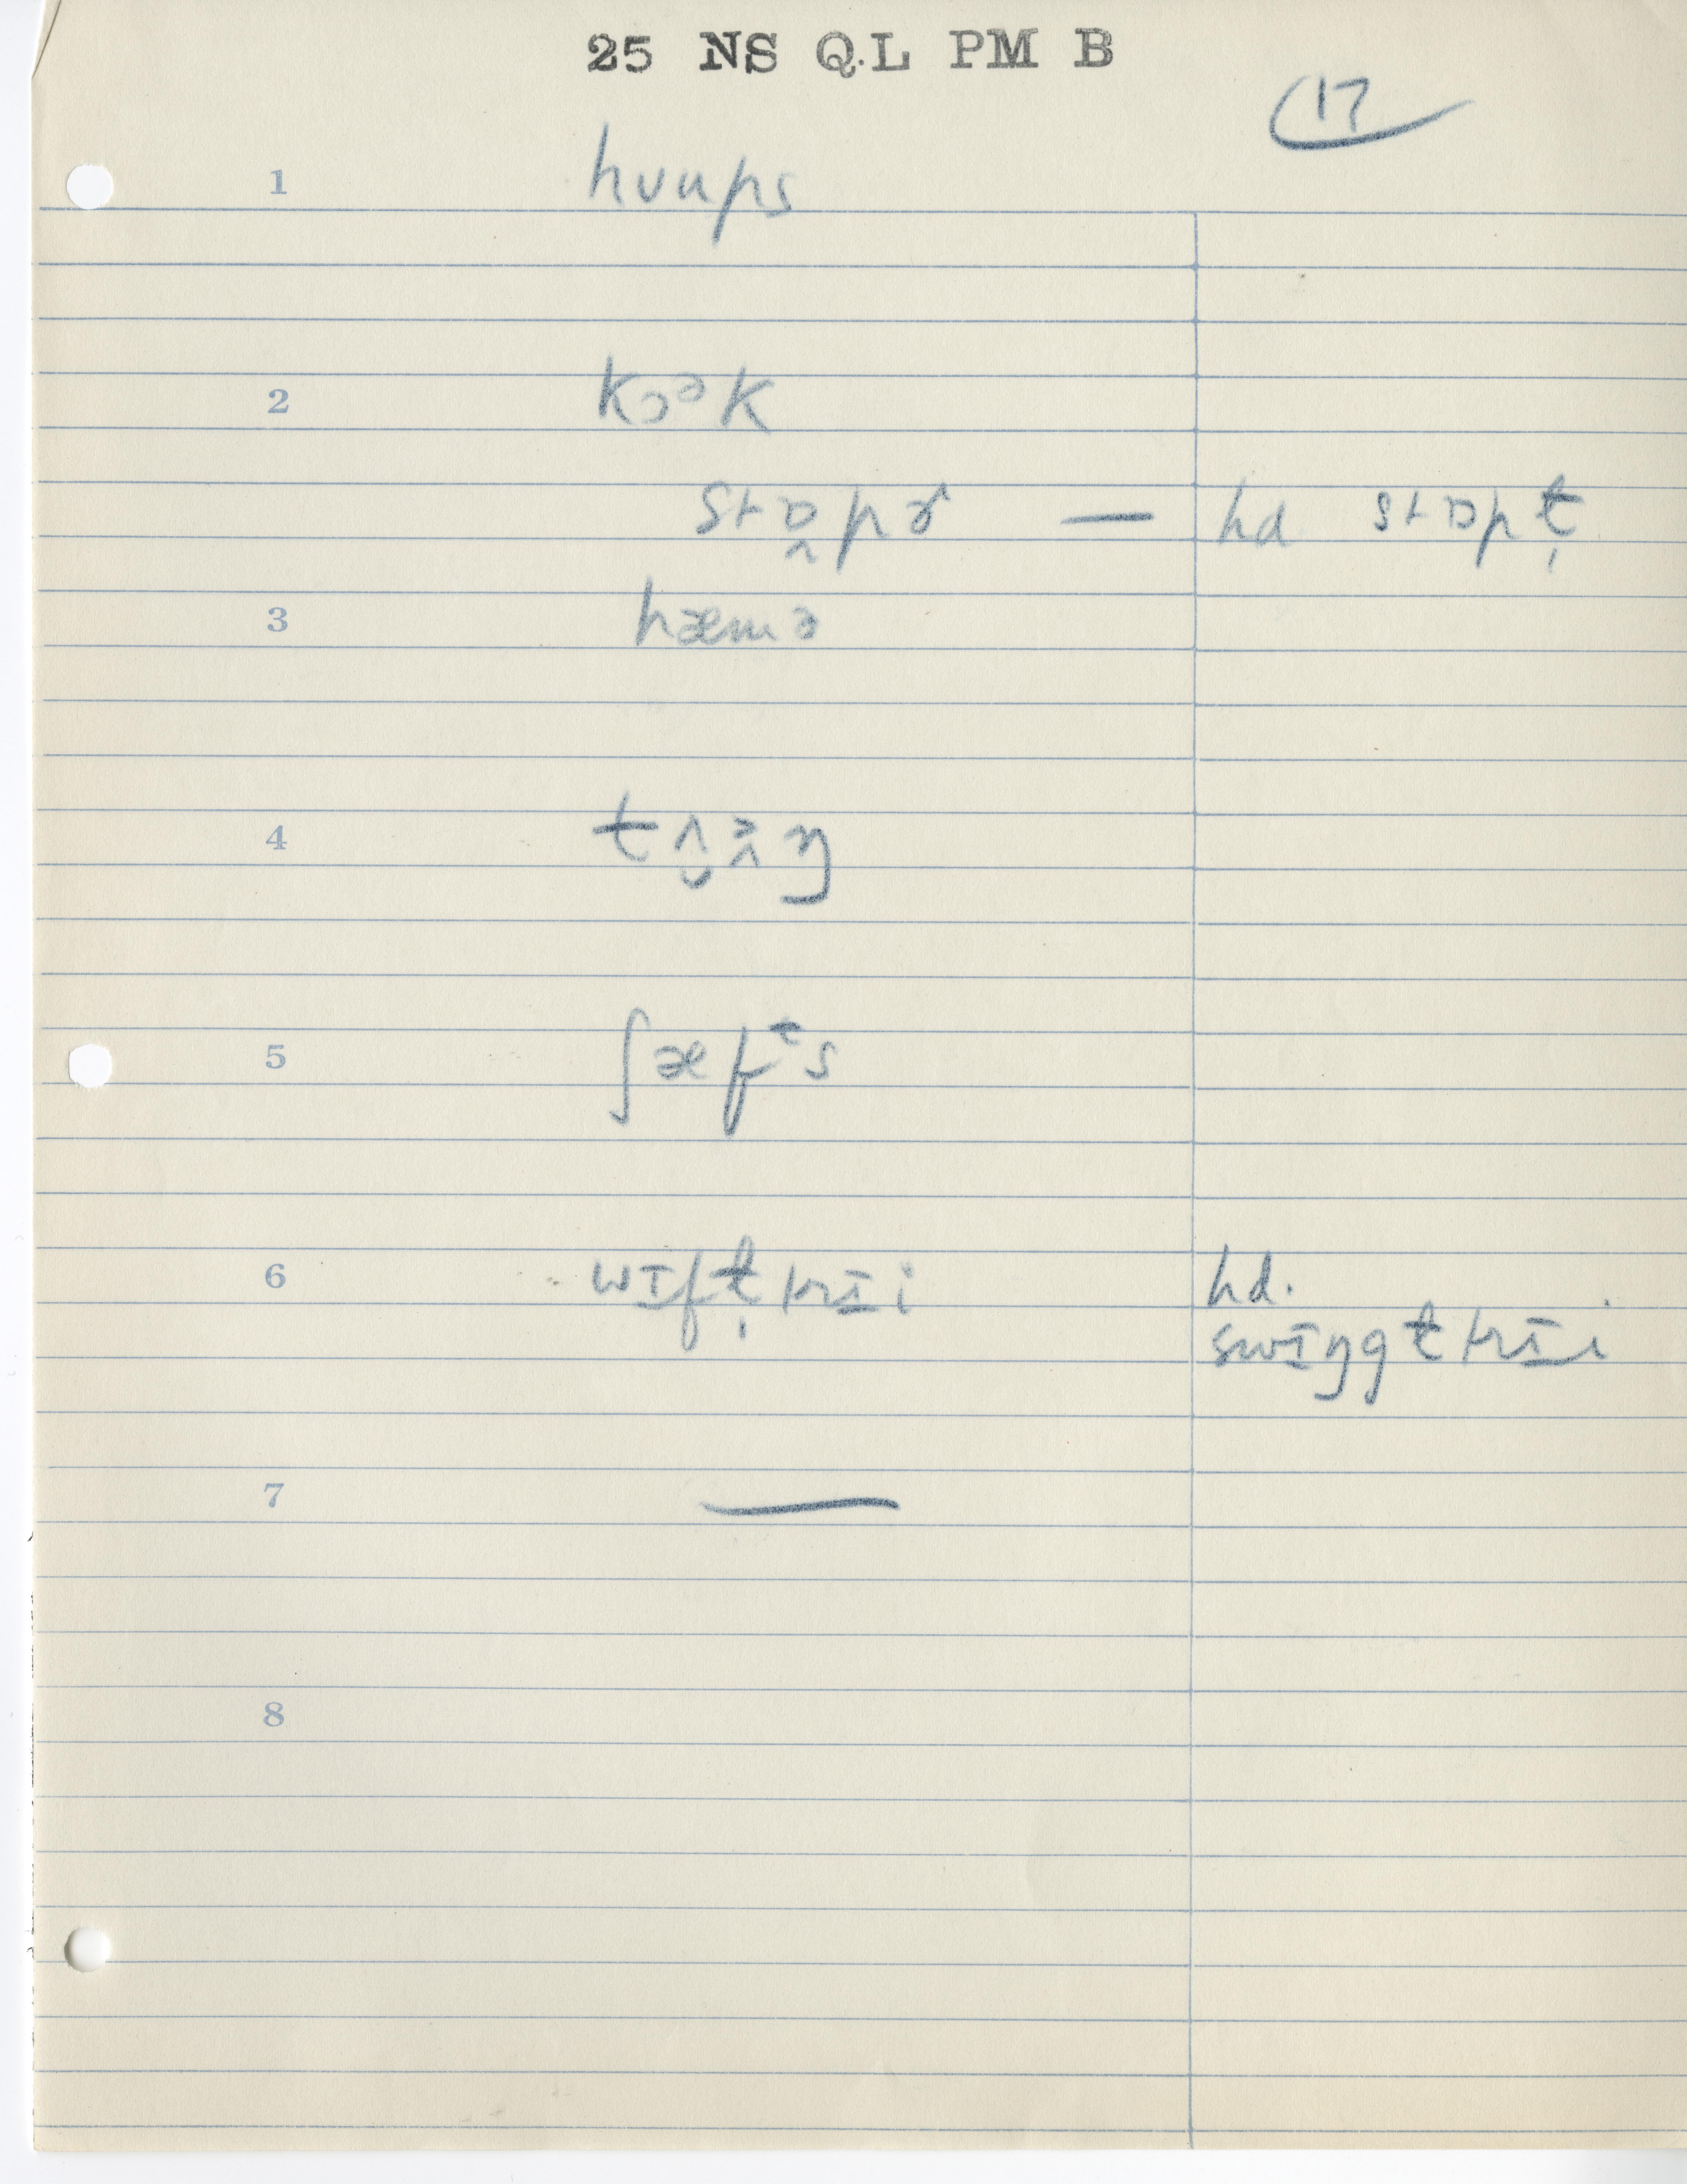 25 NS Q.L PM B
17
1 hʊups
2 kɔᵊk
stɒ̭pɚ — hd stɒpt̩
3 hæmə
4 tʌ̮ə̭ŋ
5 ʃæfᵗs
6 wɪft̩trɪi hd.
swɪŋgtrɪi
7 —
8